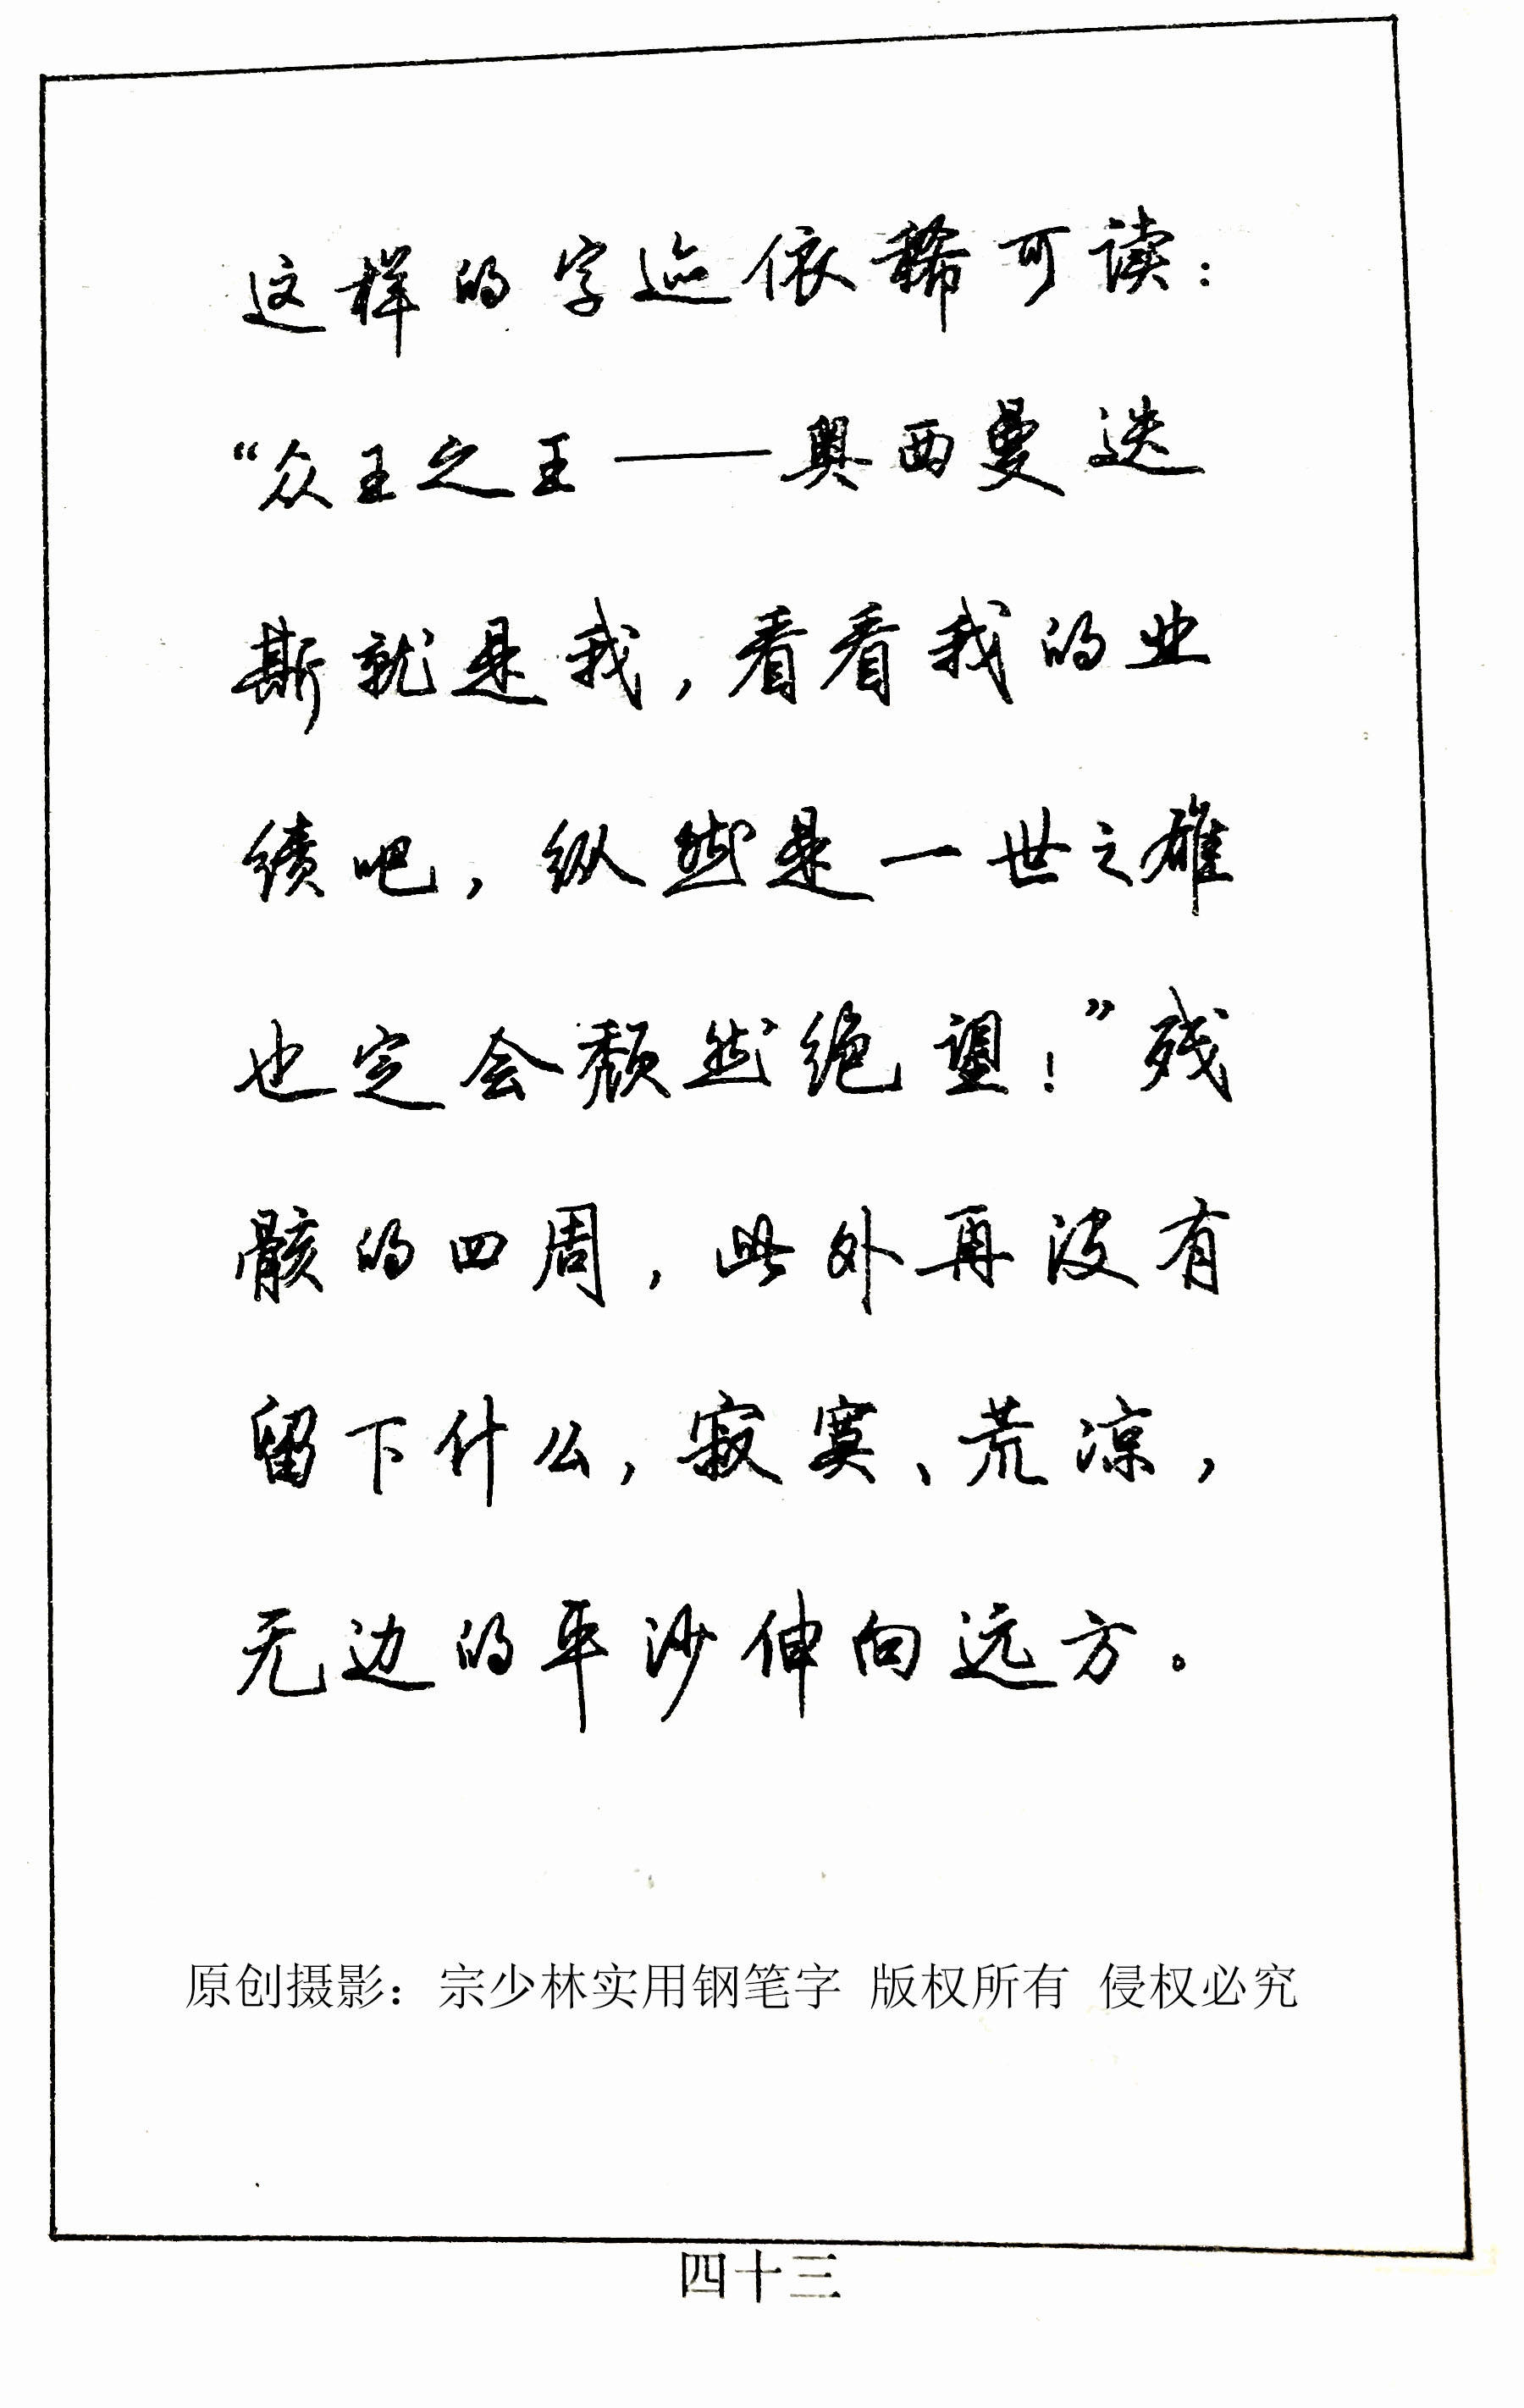 这样的字迹依稀可读：
“众王之王——奥西曼迭
斯就是我，看看我的业
绩吧，纵然是一世之雄
也定会颓然绝望！”残
骸的四周，此外再没有
留下什么，寂寞、荒凉，
无边的平沙伸向远方。
原创摄影：宗少林实用钢笔字 版权所有 侵权必究
四十三